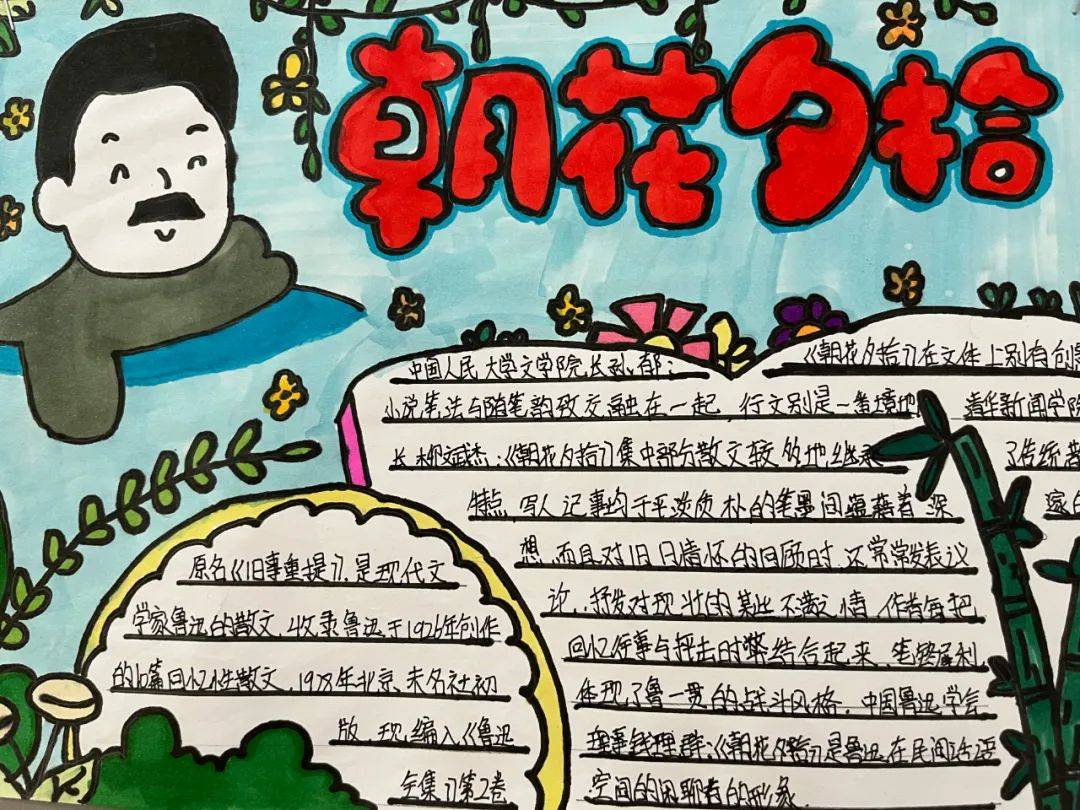 朝花夕拾
中国人民大学文学院长孙郁：
小说笔法与随笔韵致交融在一起 行文别是一番境地
长柳斌杰：《朝花夕拾》集中部分散文较多地继承
特点 写人记事均于平淡质朴的笔墨间蕴藉着深
想，而且对旧日情怀的回顾时，还常常发表议
论，抒发对现状的某些不满之情，作者每把
回忆作事与抨击时弊结合起来，笔锋犀利，
体现了鲁一贯的战斗风格，中国鲁迅学会
理事钱理群：《朝花夕拾》是鲁迅在民间话语
空间的闲聊着的形象.
《朝花夕拾》在文体上别有创意
清华新闻学院
了传统
家的
原名《旧事重提》，是现代文
学家鲁迅的散文，收录鲁迅于1926年创作
的10篇回忆性散文，1928年北京未名社初
版，现编入《鲁迅
全集》第2卷